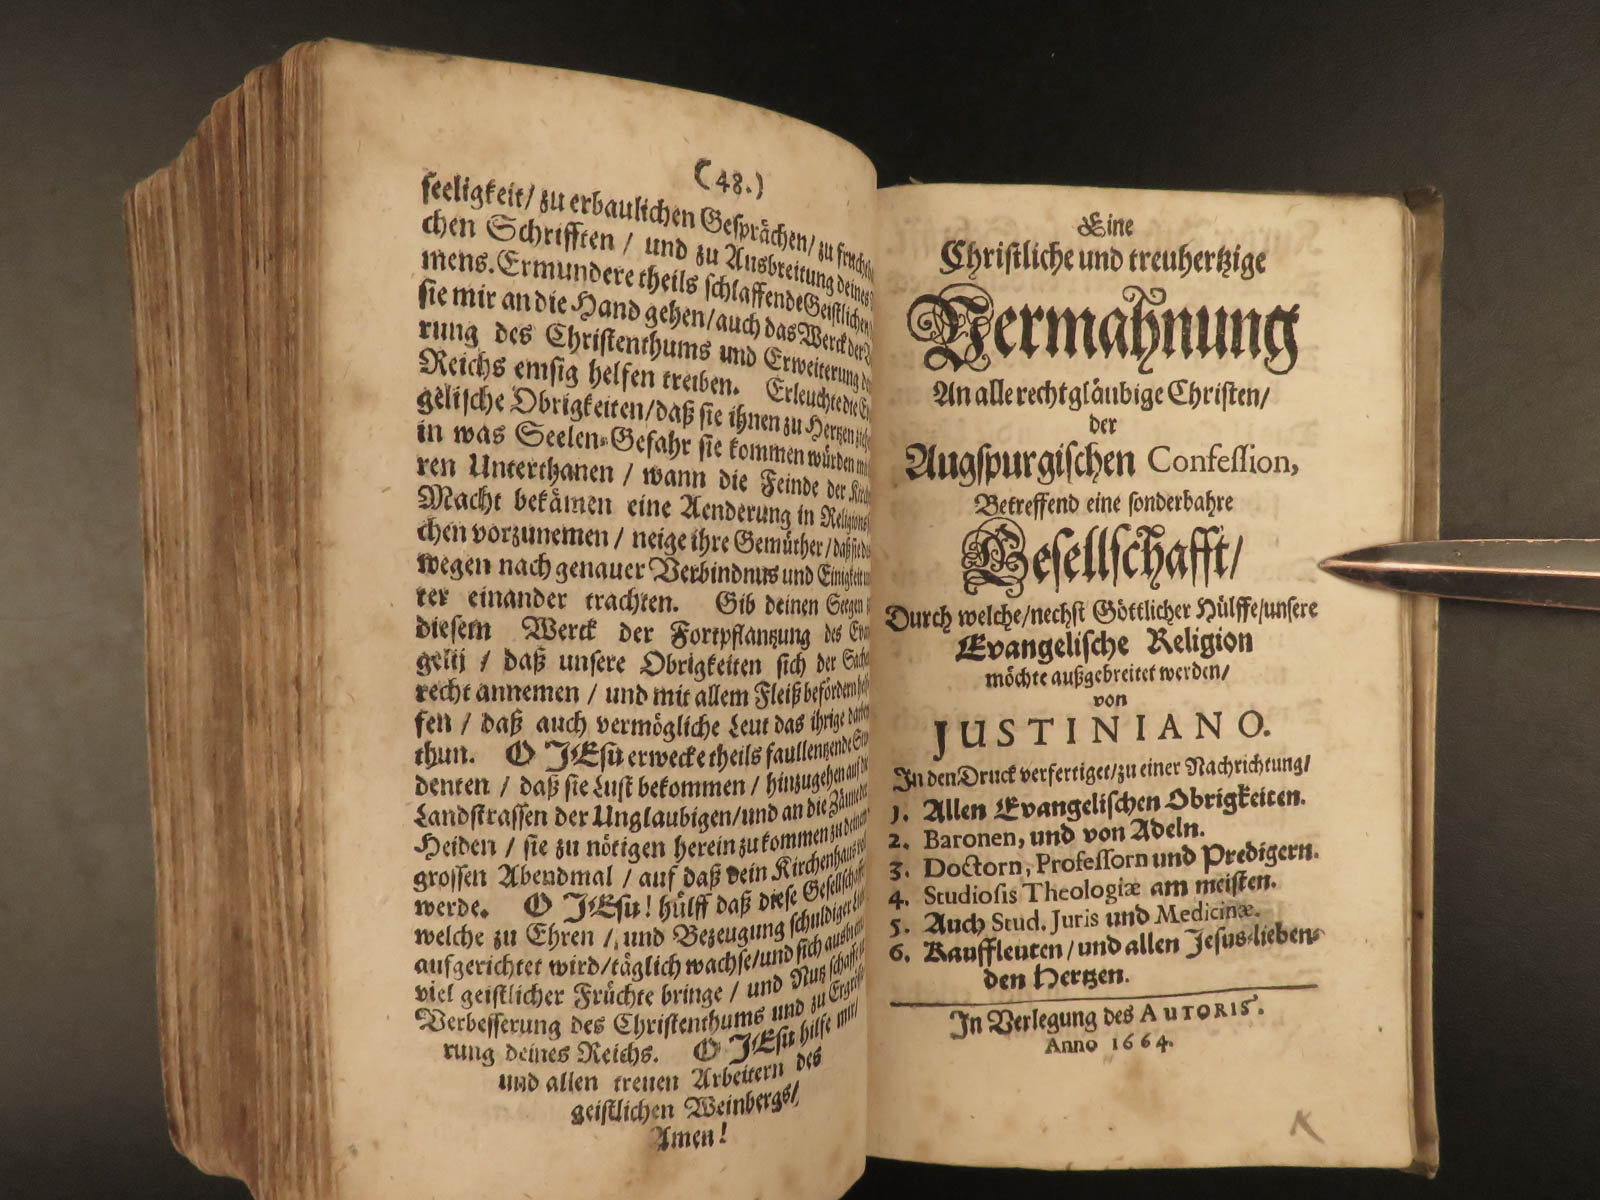 (48.)
seeligkeit/ zu erbaulichen Gesprächen/ zu
chen Schrifften / und zu Ausbreitung deines
mens. Ermundere theils schlaffende Geistlichen
sie mir an die Hand gehen/ auch das Werck der
rung des Christenthums und Erweiterung
Reichs emsig helfen treiben. Erleuchte die
gelische Obrigkeiten/ daß sie ihnen zu Hertzen
in was Seelen-Gefahr sie kommen würden
ren Unterthanen / wann die Feinde der
Macht bekämen eine Aenderung in
chen vorzunemen / neige ihre Gemüther/
wegen nach genauer Verbindnus und
ter einander trachten. Gib deinen Seegen
diesem Werck der Fortpflantzung des
gelij / daß unsere Obrigkeiten sich der
recht annemen / und mit allem Fleiß befördern
fen / daß auch vermögliche Leut das ihrige
thun. O JEsu erwecke theils faullentzende
denten / daß sie Lust bekommen / hinzugehen auf
Landstrassen der Unglaubigen/ und an die Zäune
Heiden / sie zu nötigen herein zu kommen zu
grossen Abendmal / auf daß dein Kirchenhaus
werde. O JEsu! hülff daß diese Gesellschafft
welche zu Ehren / und Bezeugung schuldiger
aufgerichtet wird/ täglich wachse/ und sich
viel geistlicher Früchte bringe / und Nutz
Verbesserung des Christenthums und zu
rung deines Reichs. O JEsu hilfe mir/
und allen treuen Arbeitern des
geistlichen Weinbergs/
Amen!
Eine
Christliche und treuhertzige
Vermahnung
An alle rechtgläubige Christen/
der
Augspurgischen Confession,
Betreffend eine sonderbahre
Gesellschafft/
Durch welche/ nechst Göttlicher Hülffe/ unsere
Evangelische Religion
möchte außgebreitet werden/
von
JUSTINIANO.
In den Druck verfertiget/ zu einer Nachrichtung/
1. Allen Evangelischen Obrigkeiten.
2. Baronen, und von Adeln.
3. Doctorn, Professorn und Predigern.
4. Studiosis Theologiæ am meisten.
5. Auch Stud. Juris und Medicinæ.
6. Kauffleuten/ und allen Jesus-lieben-
den Hertzen.
In Verlegung des AUTORIS.
Anno 1664.